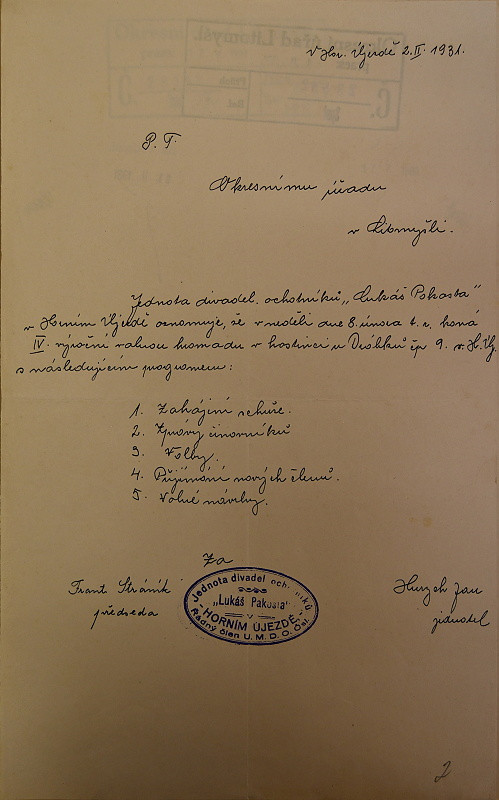 V Hor. Újezdě 2. II. 1931.
P. T.
Okresnímu úřadu
v Litomyšli.
Jednota divadel. ochotníků „Lukáš Pakosta"
v Horním Újezdě oznamuje, že v neděli dne 8. února t. r. koná
IV. výroční valnou hromadu v hostinci u čp 9. v H. Új.
s následujícím programem:
1. Zahájení schůze.
2. Zprávy činovníků
3. Volby.
4. Přijímání nových členů.
5. Volné návrhy.
Za
Frant. Stráník
předseda
Jednota divadel. ochotníků
„Lukáš Pakosta"
V
HORNÍM ÚJEZDĚ.
Řádný člen Ú. M. D. O. Čsl.
Jan
jednatel
2